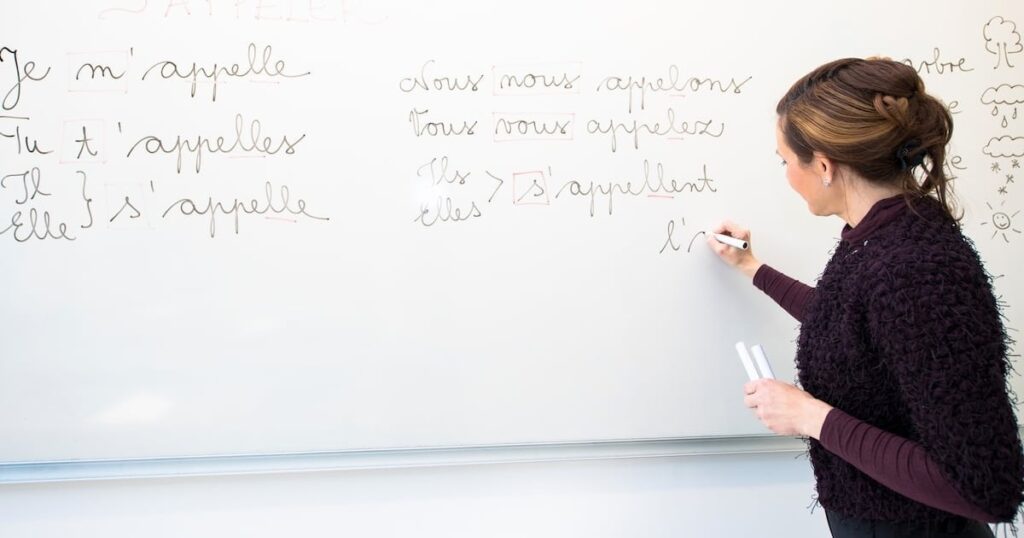 S'APPELER
Je m'appelle
Tu t'appelles
Il
Elle } s'appelle
Nous nous appelons
Vous vous appelez
Ils
Elles > s'appellent
l'
arbre